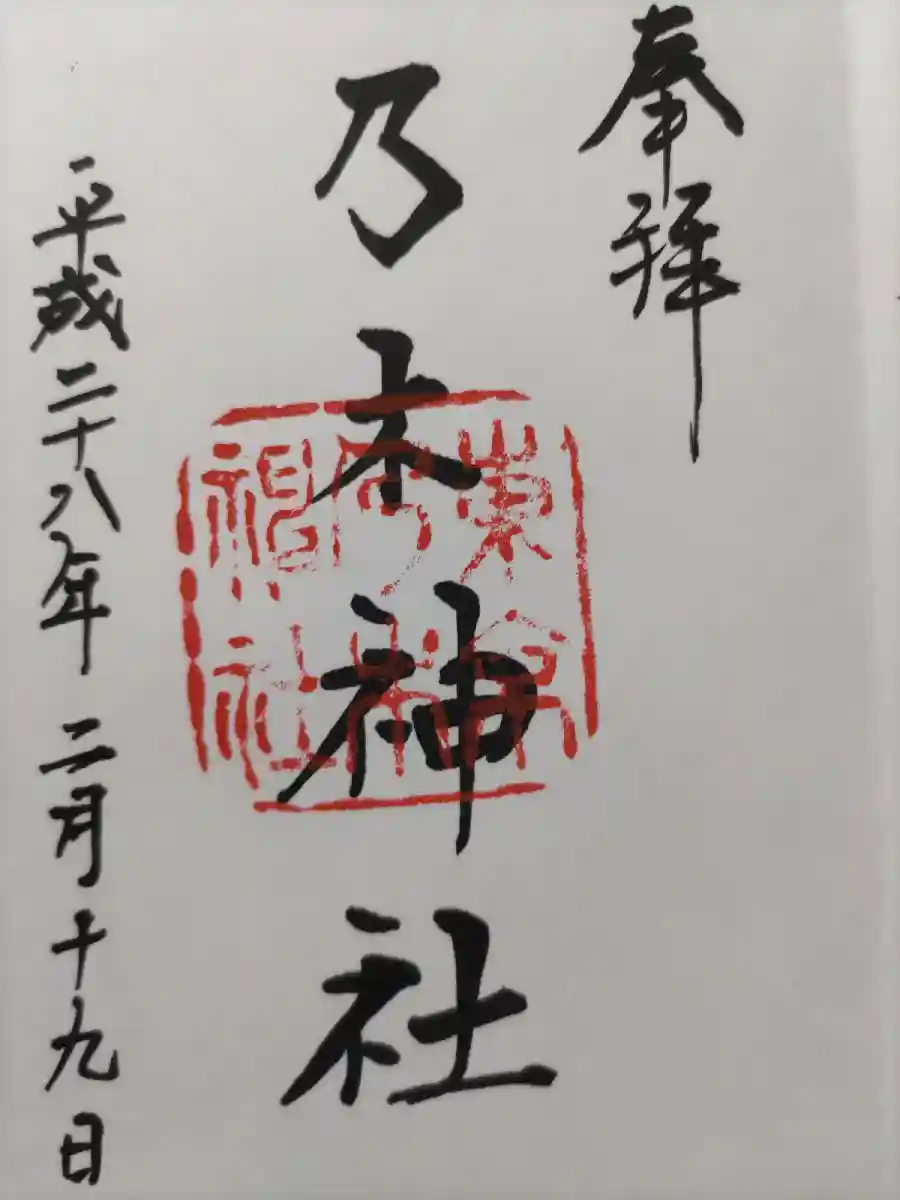 奉拝
乃木神社
東京
乃木
神社
平成二十八年二月十九日